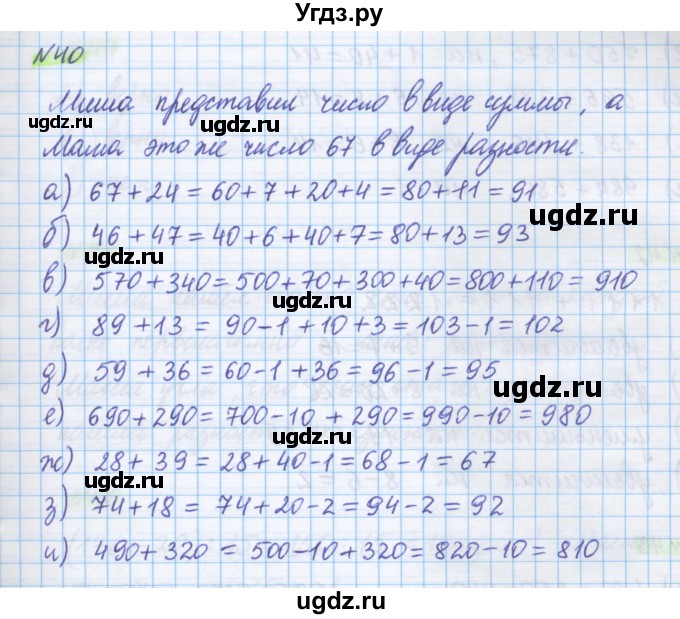 Угдз.ру
N40
Миша представил число в виде суммы, а
Маша это же число 67 в виде разности.
а) 67 + 24 = 60 + 7 + 20 + 4 = 80 + 11 = 91
б) 46 + 47 = 40 + 6 + 40 + 7 = 80 + 13 = 93
в) 570 + 340 = 500 + 70 + 300 + 40 = 800 + 110 = 910
г) 89 + 13 = 90 - 1 + 10 + 3 = 103 - 1 = 102
д) 59 + 36 = 60 - 1 + 36 = 96 - 1 = 95
е) 690 + 290 = 700 - 10 + 290 = 990 - 10 = 980
ж) 28 + 39 = 28 + 40 - 1 = 68 - 1 = 67
з) 74 + 18 = 74 + 20 - 2 = 94 - 2 = 92
и) 490 + 320 = 500 - 10 + 320 = 820 - 10 = 810
ugdz.ru
ugdz.ru
ugdz.ru
ugdz.ru
ugdz.ru
ugdz.ru
ugdz.ru
ugdz.ru
ugdz.ru
ugdz.ru
ugdz.ru